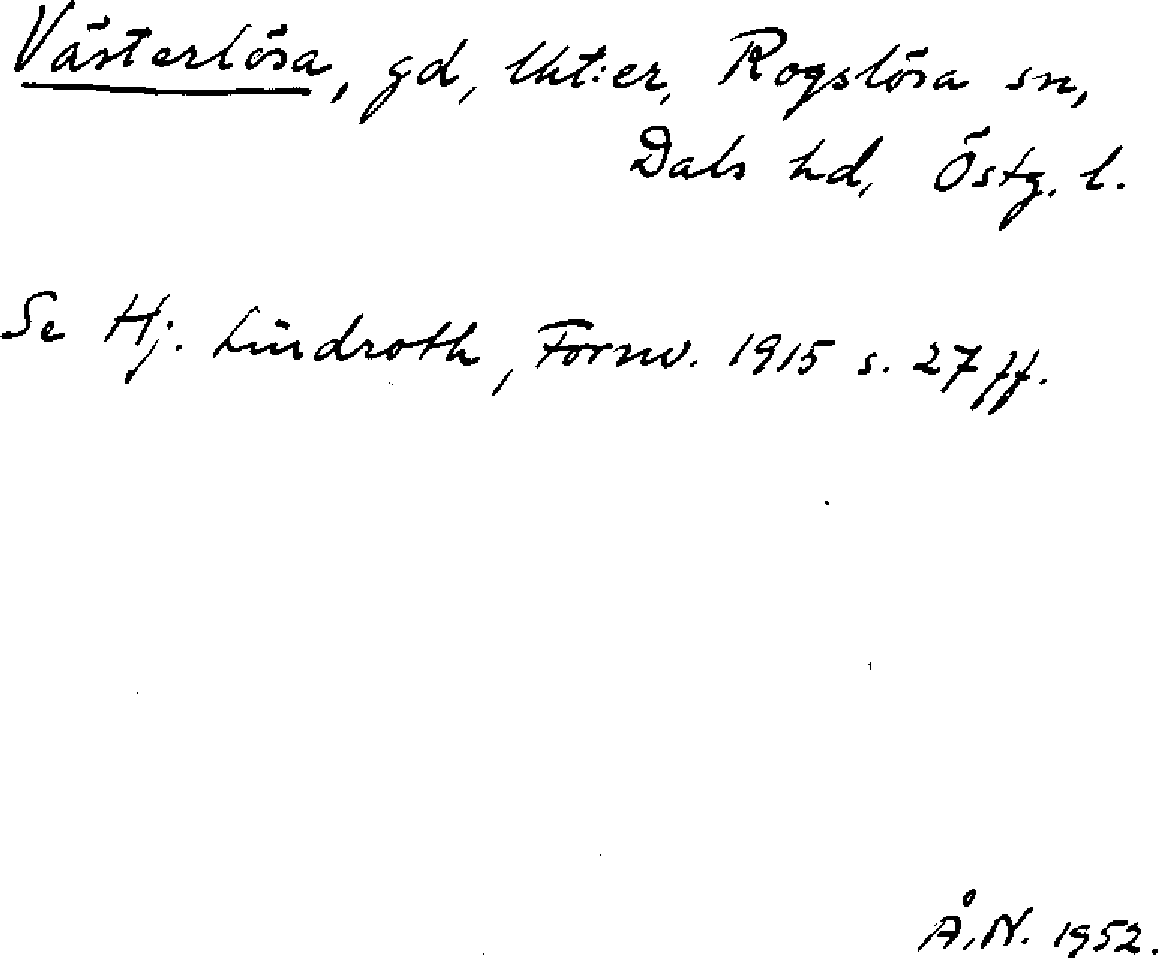 Västerlösa, gd, lht:er, Rogslösa sn,
Dals hd, Östg. l.
Se Hj. Lindroth, Fornv. 1915 s. 27 ff.
Å.N. 1952.